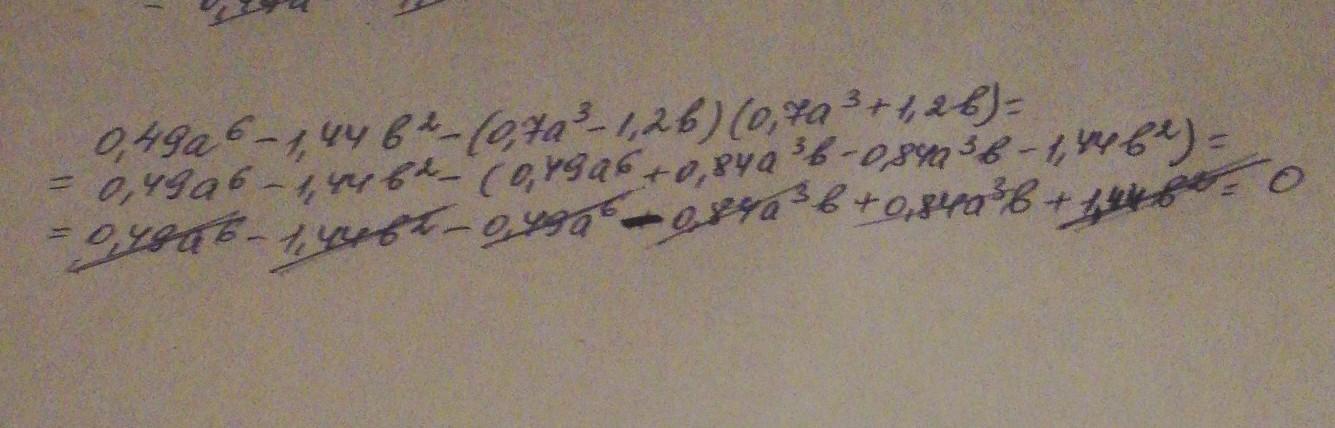 0,49a⁶ - 1,44в² - (0,7a³ - 1,2в)(0,7a³ + 1,2в) =
= 0,49a⁶ - 1,44в² - (0,49a⁶ + 0,84a³в - 0,84a³в - 1,44в²) =
= 0,49a⁶ - 1,44в² - 0,49a⁶ - 0,84a³в + 0,84a³в + 1,44в² = 0